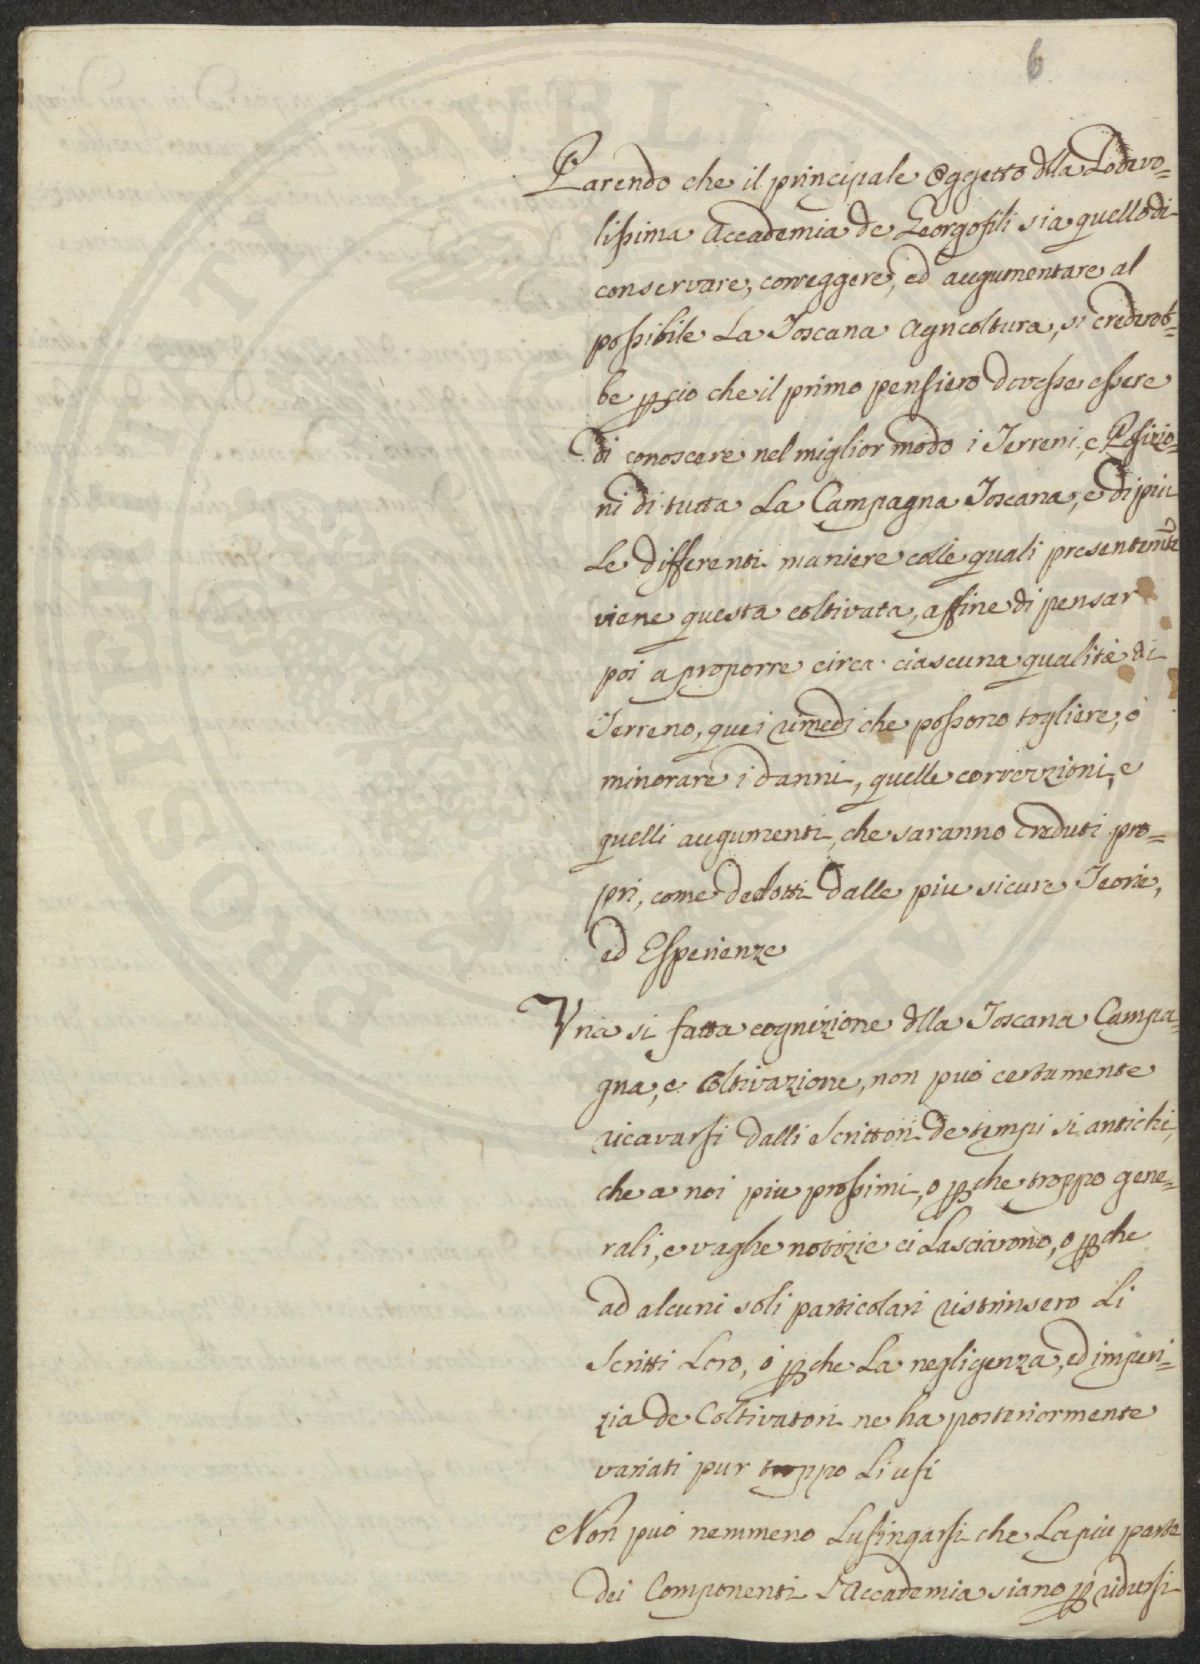 6
Parendo che il principale Oggetto dlla Lodevo=
lissima Accademia de Georgofili sia quello di
conservare, correggere, ed augumentare al
possibile La Toscana Agricoltura, si credereb=
be ꝑciò che il primo pensiero dovesse essere
di conoscere nel miglior modo i Terreni, e Posizio=
ni di tutta La Campagna Toscana, e di piu
Le differenti maniere colle quali presentemte
viene questa coltivata, affine di pensar
poi a proporre circa ciascuna qualità di
Terreno, quei rimedi che possono togliere, ò
minorare i danni, quelle correzzioni, e
quelli augumenti, che saranno creduti pro=
pri, come dedotti dalle piu sicure Teorie,
ed Esperienze
Una si fatta cognizione dlla Toscana Campa=
gna, e Coltivazione, non può certamente
ricavarsi dalli Scrittori de tempi si antichi,
che a noi piu prossimi, o ꝑche troppo gene=
rali, e vaghe notizie ci Lasciarono, o ꝑche
ad alcuni soli particolari ristrinsero Li
Scritti Loro, ò ꝑche La negligenza, ed imperi=
zia de Coltivatori ne ha posteriormente
variati pur troppo Li usi
Non può nemmeno Lusingarsi che La piu parte
dei Componenti L'Accademia siano ꝑ ridursi